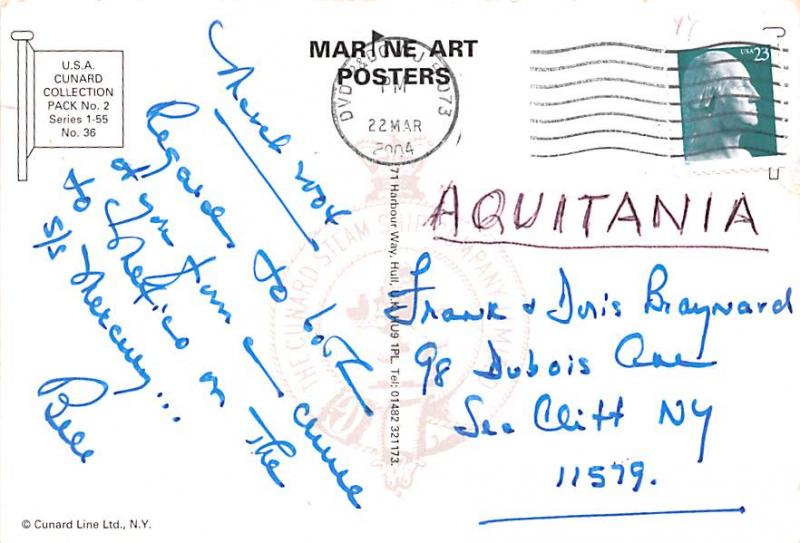 U.S.A.
CUNARD
COLLECTION
PACK No. 2
Series 1-55
No. 36
MARINE ART
POSTERS
PM
22 MAR
2004
USA 23
March 2004
Regards to both
of you from a cruise
to Mexico on the
s/s Mercury...
Bill
71 Harbour Way, Hull, U.K. HU9 1PL. Tel: 01482 321173.
THE CUNARD STEAM SHIP COMPANY LIMITED
AQUITANIA
Frank & Doris Braynard
98 Dubois Ave
Sea Cliff NY
11579.
© Cunard Line Ltd., N.Y.